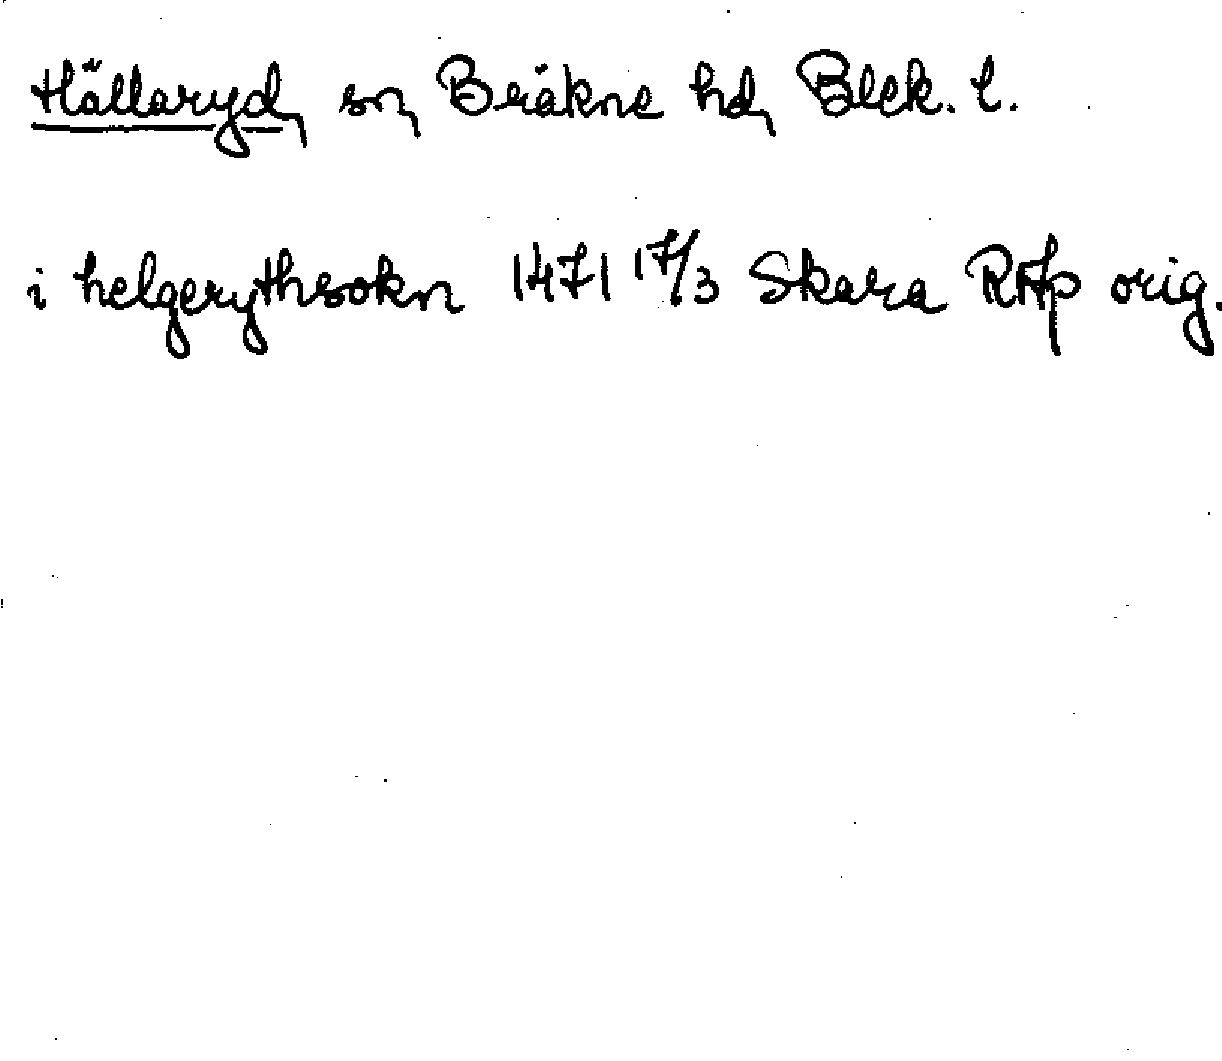 Hällaryd, sn, Bräkne hd, Blek. l.
i helgerythsokn 1471 17/3 Skara RAp orig.